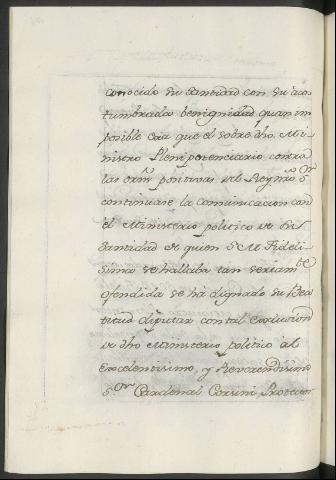 conocido su Santidad con su acos
tumbrada benignidad quan im
posible era que el sobre dho. Mi
nistro Plenipotenciario contra
las orns. positivas del Reyno S.or
continuase la comunicacion con
el Ministerio politico de Su
Santidad de quien S. M. Fideli
sima se hallaba tan seriam.te
ofendida se ha dignado su Bea
titud diputar con tal exclusion
de dho Ministerio politico al
Excelentisimo, y Reverendisimo
S.or Cardenal Corsini Protector